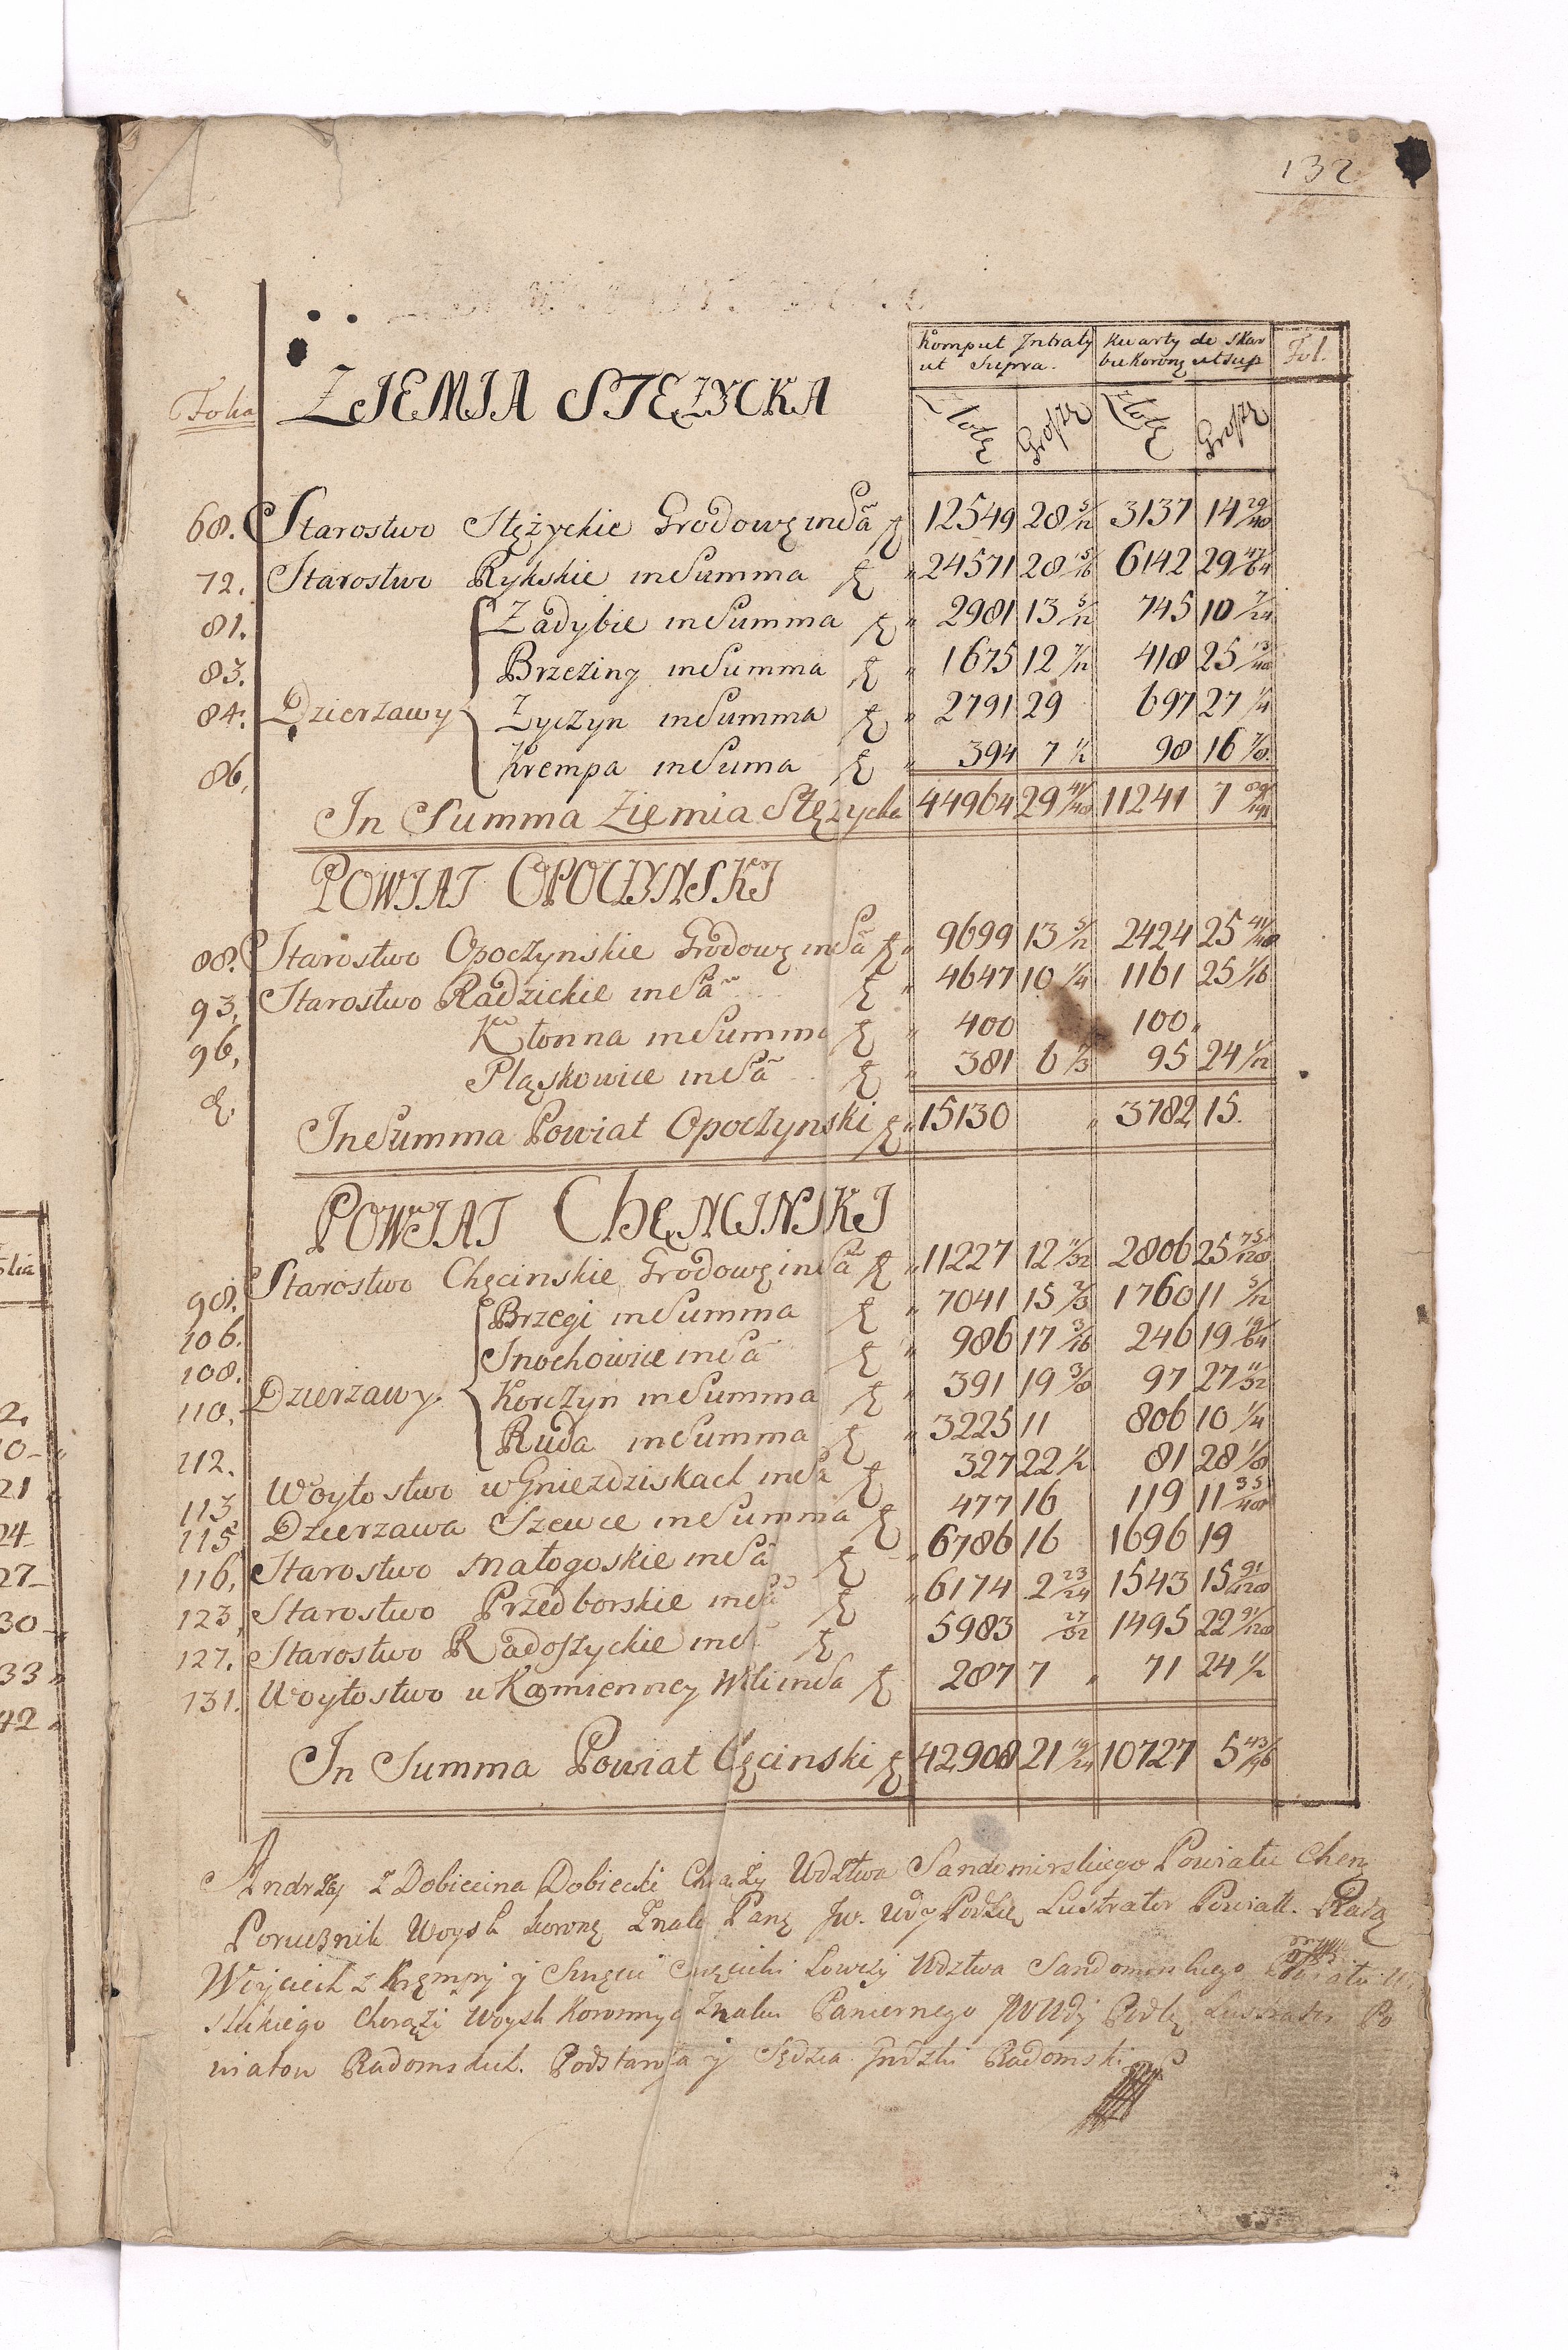 132
Komput Intraty Kwarty de Skar
ut Supra. bu Koronę ut sup Fol.
Folia ZIEMIA STĘZYCKA Złotę Groszy Złotę Groszy
68. Starostwo Stężyckie Grodowę in Sã 12549 28 5/12 3137 14 29/48
72. Starostwo Rykskie in Summa 24571 28 15/16 6142 29 47/64
81. Zadybie in Summa 2981 13 5/12 745 10 7/24
83. Brzeziny in Summa 1675 12 7/12 418 25 13/48
84. Dzierzawy Zyczyn in Summa 2791 29 697 27 1/4
86. Krempa in Suma 394 7 1/2 98 16 7/8
In Summa Ziemia Stęzycka 44964 29 41/48 11241 7
POWIAT OPOCZYNSKI
88. Starostwo Opoczynskie Grodowę in Sã 9699 13 5/12 2424 25 41/48
93. Starostwo Radzickie in Sã 4647 10 1/4 1161 25 1/16
96. Kłonna in Summa 400 100
d. Pląskowice in Sã 381 6 1/3 95 24 1/12
In Summa Powiat Opoczynski 15130 3782 15.
POWIAT CHĘNCINSKI
98. Starostwo Chęcinskie Grodowę in Sã 11227 12 11/32 2806 25 75/128
106. Brzegi in Summa 7041 15 2/3 1760 11 5/12
108. Snochowice in Sã 986 17 3/16 246 19 19/64
110. Dzierzawy Korczyn in Summa 391 19 3/8 97 27 11/32
112. Ruda in Summa 3225 11 806 10 1/4
113 Woytostwo w Gniezdziskach in Sã 327 22 1/2 81 28 1/8
115 Dzierzawa Szewce in Summa 477 16 119 11 35/48
116. Starostwo Małogoskie in Sã 6786 16 1696 19
123 Starostwo Przedborskie in Sã 6174 2 23/24 1543 15 91/128
127. Starostwo Radoszyckie in S 5983 27/32 1495 22 91/128
131. Woytostwo w Kamienney Woli in Sa 287 7 71 24 1/2
In Summa Powiat Cięcinski 42908 21 19/24 10727 5 43/96
Andrzey z Dobiecina Dobiecki Chorąży Wdztwa Sandomirskiego Powiatu Chen
Porucznik Woysk Koronę Znaku Panę Lustrator Powiatt. Rada
Woyciech z Krępy y Swięcic Swięcicki Łowczy Wdztwa Sandomirskiego Powiatu
Chorąży Woysk Koronnyc Znaku Pancernego Lustrator Po
wiatow Radomskich. Podstarosta y Sędzia Grodzki Radomski